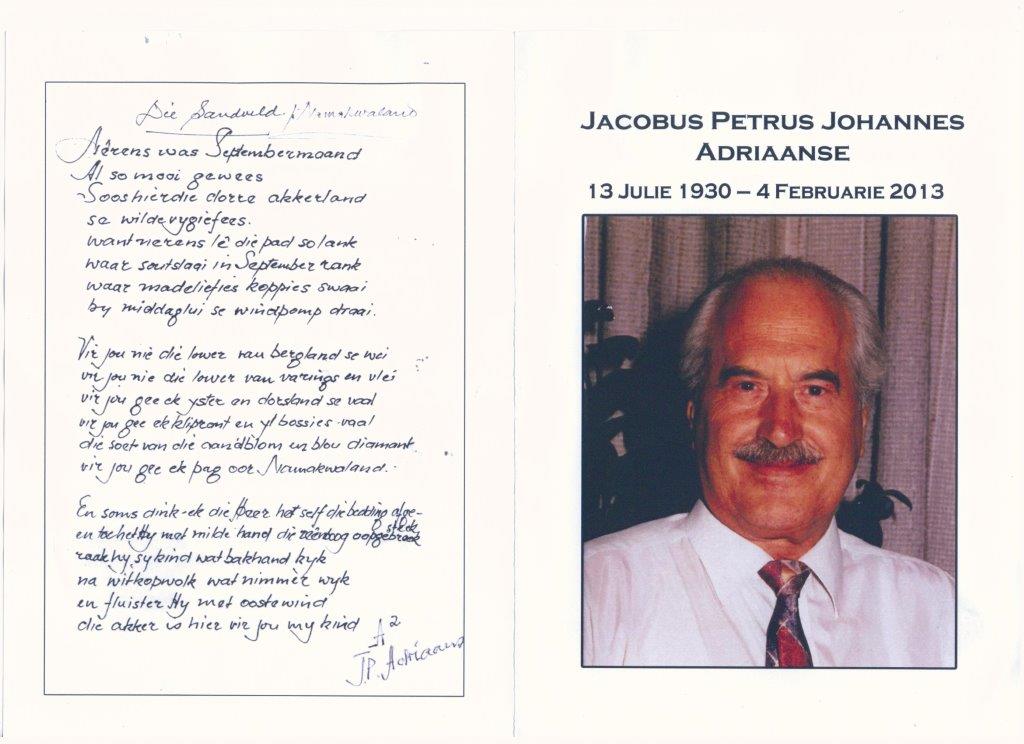 Die Sandveld / Namakwaland
Nêrens was Septembermaand
Al so mooi gewees
Soos hierdie dorre akkerland
se wildevygiefees.
want nêrens lê die pad so lank
waar soutslaai in September rank
waar madeliefies koppies swaai
by middaglui se windpomp draai.
Vir jou nie die lower van bergland se wei
vir jou nie die lower van varings en vlei
vir jou gee ek yster en dorsland se vaal
vir jou gee ek kliprant en yl bossies vaal
die soet van die aandblom en blou diamant
vir jou gee ek pag oor Namakwaland.
En soms dink-ek die Heer het self die bedding afge-
steek
en toe het Hy met milde hand die reënboog oopgebreek
raak hy sy kind wat bakhand kyk
na witkopwolk wat nimmer wyk
en fluister Hy met oostewind
die akker is hier vir jou my kind
A2
J.P. Adriaanse
JACOBUS PETRUS JOHANNES
ADRIAANSE
13 JULIE 1930 – 4 FEBRUARIE 2013